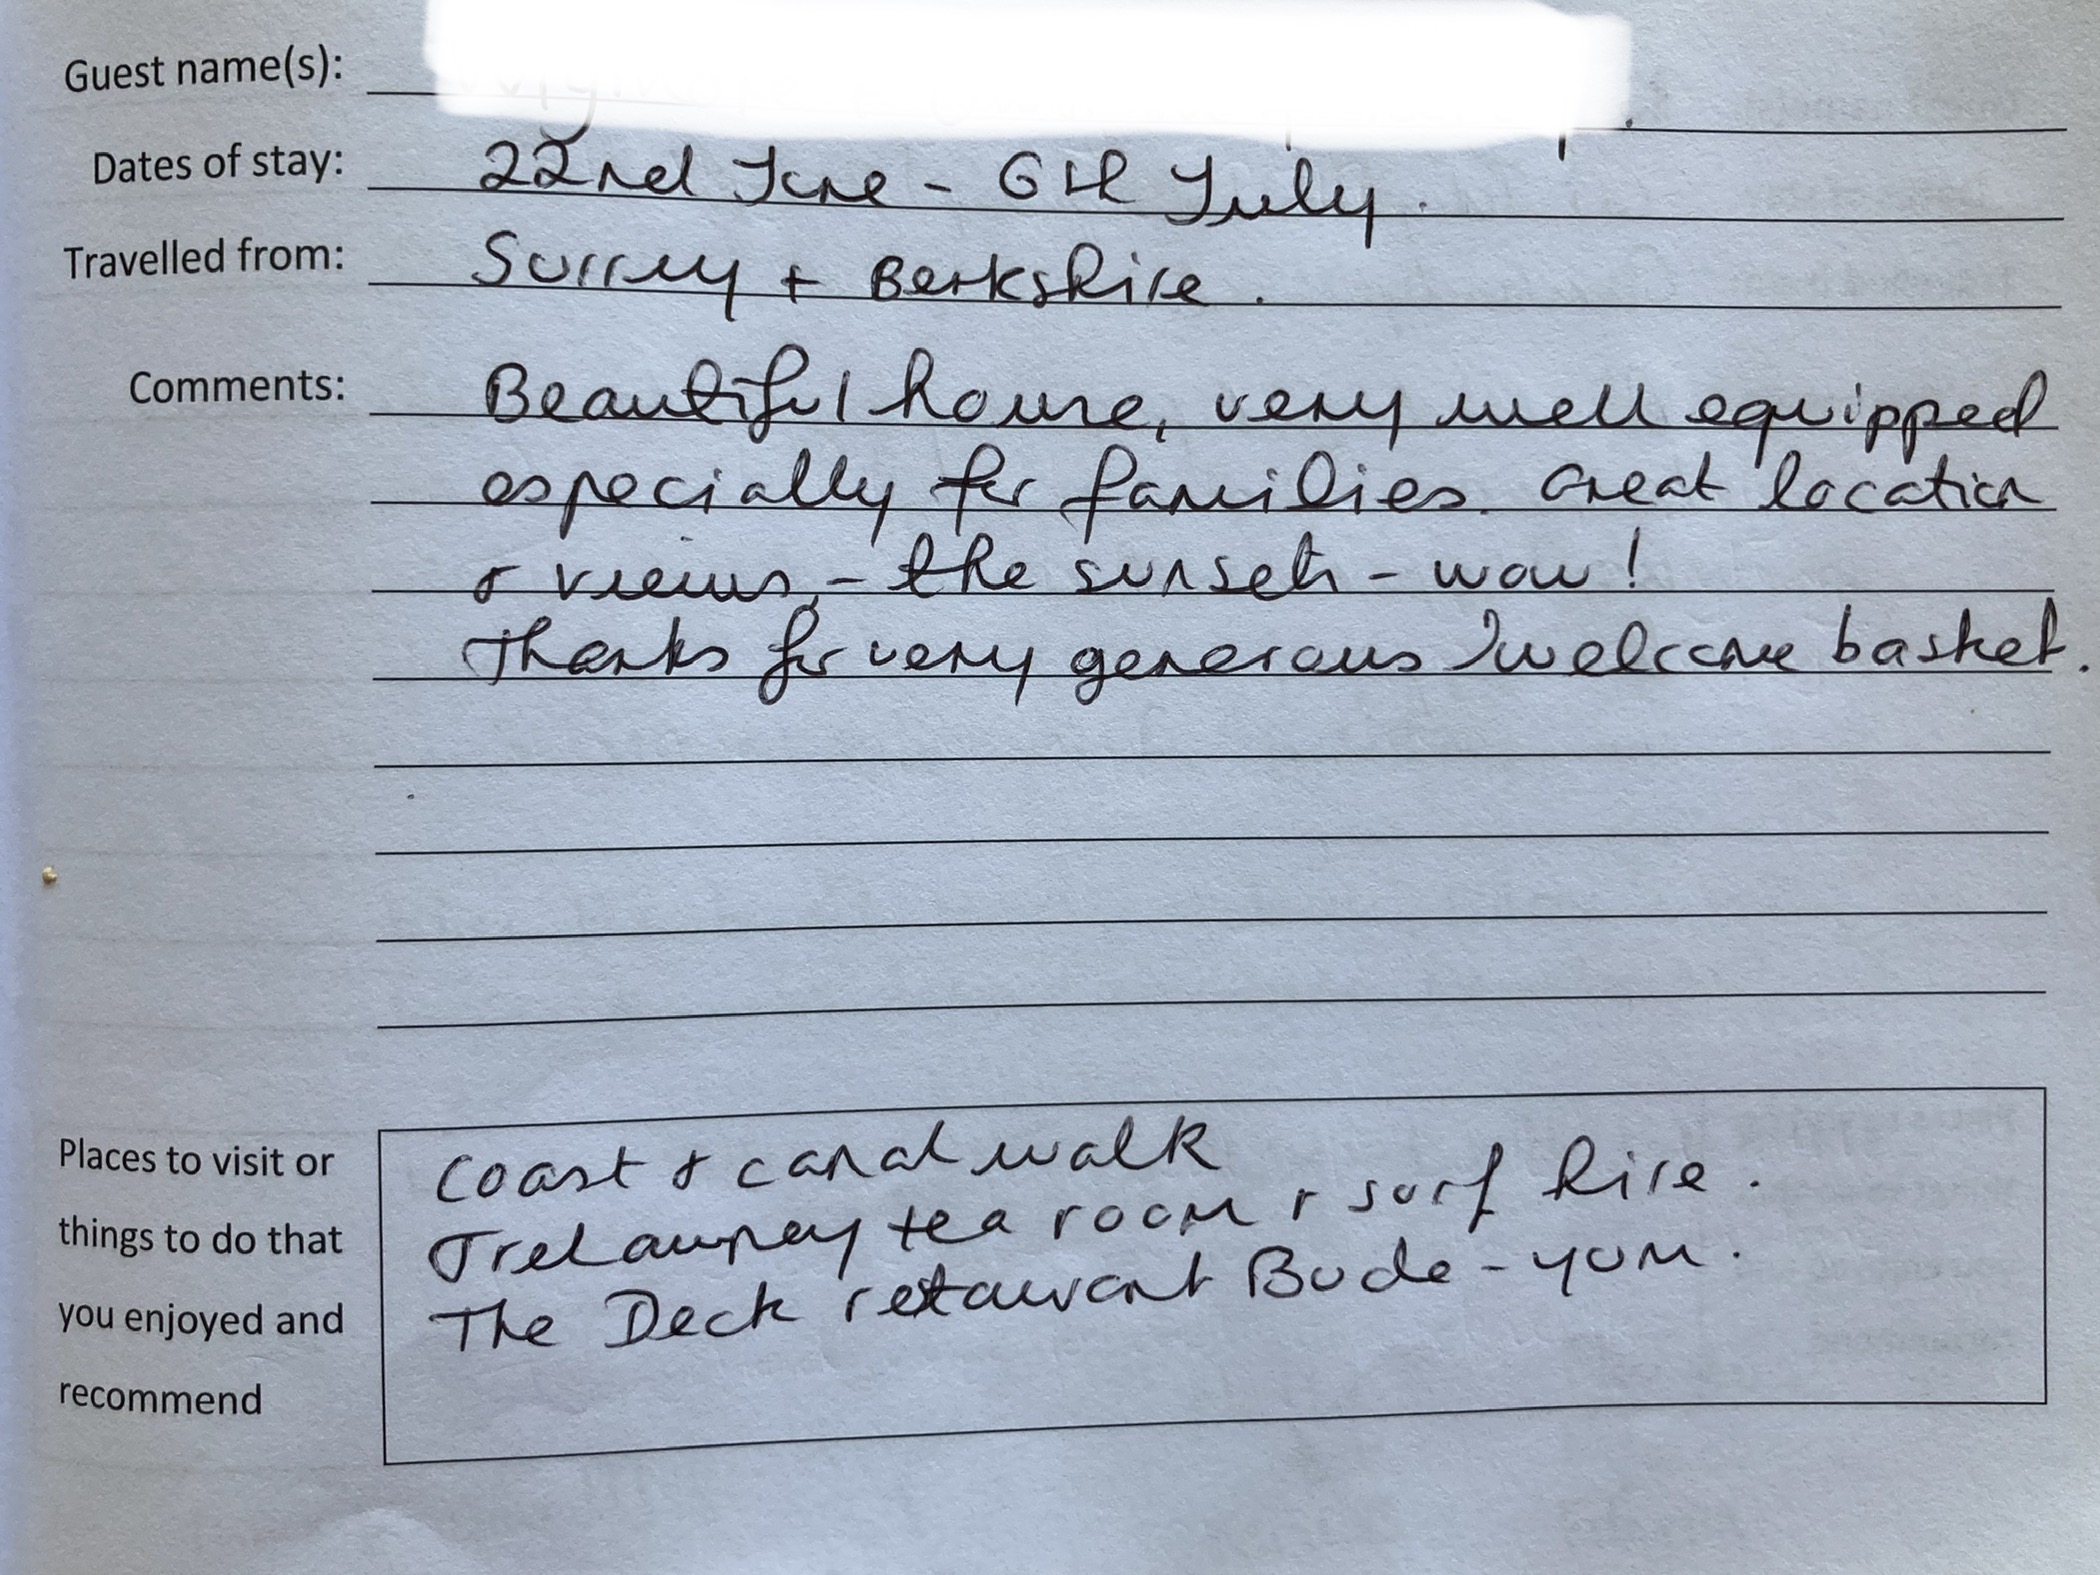 Guest name(s):
Dates of stay: 22nd June - 6th July.
Travelled from: Surrey + Berkshire.
Comments: Beautiful house, very well equipped
especially for families. Great location
& views, - the sunsets - wow!
Thanks for very generous welcome basket.
Places to visit or
things to do that
you enjoyed and
recommend
Coast & canal walk
Trelawney tea room & surf hire.
The Deck retaurant Bude - yum.